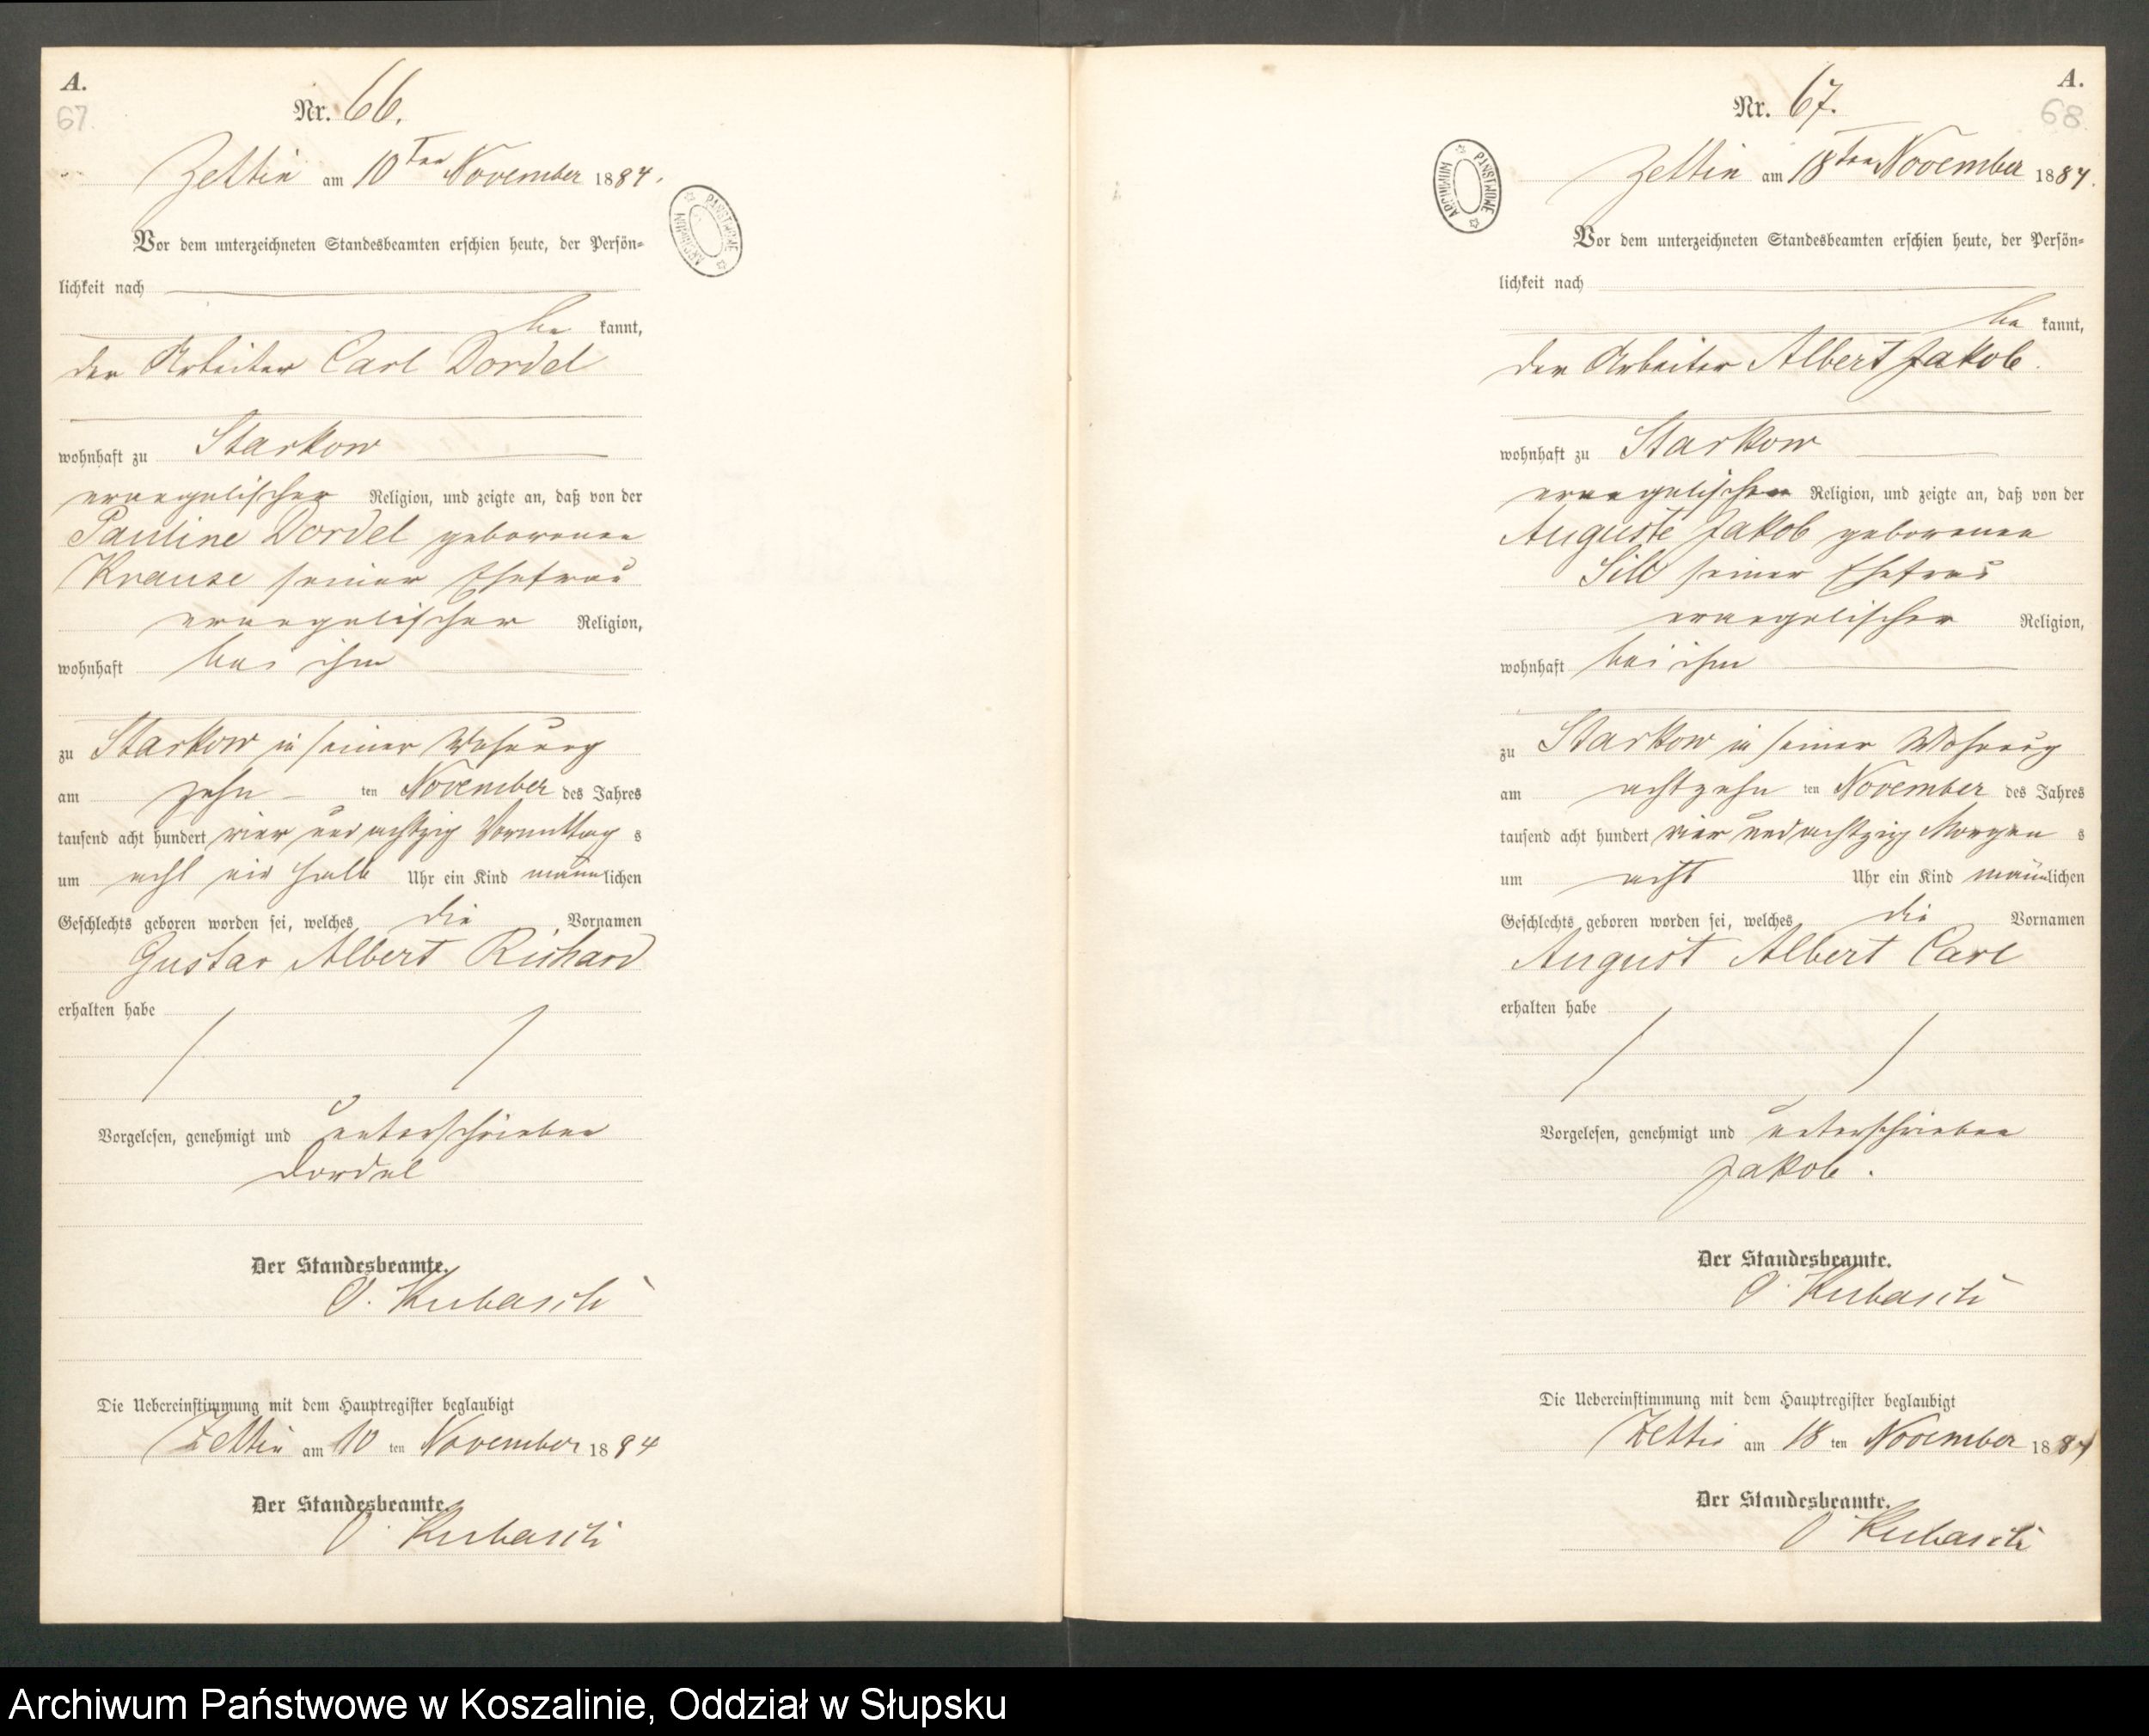 A.
67.
Nr. 66.
Zettin am 10ten November 1884.
Vor dem unterzeichneten Standesbeamten erschien heute, der Persön-
lichkeit nach
be kannt,
der Arbeiter Carl Dordel
wohnhaft zu Starkow
evangelischer Religion, und zeigte an, daß von der
Pauline Dordel geborenen
Krause seiner Ehefrau
evangelischer Religion,
wohnhaft bei ihm
zu Starkow in seiner Wohnung
am zehn ten November des Jahres
tausend acht hundert vier und achtzig Vormittag s
um acht ein halb Uhr ein Kind männlichen
Geschlechts geboren worden sei, welches die Vornamen
Gustav Albert Richard
erhalten habe
Vorgelesen, genehmigt und unterschrieben
Dordel
Der Standesbeamte.
O. Kubasch
Die Uebereinstimmung mit dem Hauptregister beglaubigt
Zettin am 10 ten November 1884
Der Standesbeamte.
O. Kubasch
ARCHIWUM PAŃSTWOWE
A.
68
Nr. 67.
Zettin am 18ten November 1884.
ARCHIWUM PAŃSTWOWE
Vor dem unterzeichneten Standesbeamten erschien heute, der Persön-
lichkeit nach
be kannt,
der Arbeiter Albert Jakob.
wohnhaft zu Starkow
evangelischer Religion, und zeigte an, daß von der
Auguste Jakob geborenen
seiner Ehefrau
evangelischer Religion,
wohnhaft bei ihm
zu Starkow in seiner Wohnung
am achtzehn ten November des Jahres
tausend acht hundert vier und achtzig Morgen s
um acht Uhr ein Kind männlichen
Geschlechts geboren worden sei, welches die Vornamen
August Albert Carl
erhalten habe
Vorgelesen, genehmigt und unterschrieben
Jakob.
Der Standesbeamte.
O. Kubasch
Die Uebereinstimmung mit dem Hauptregister beglaubigt
Zettin am 18 ten November 1884
Der Standesbeamte.
O Kubasch
Archiwum Państwowe w Koszalinie, Oddział w Słupsku